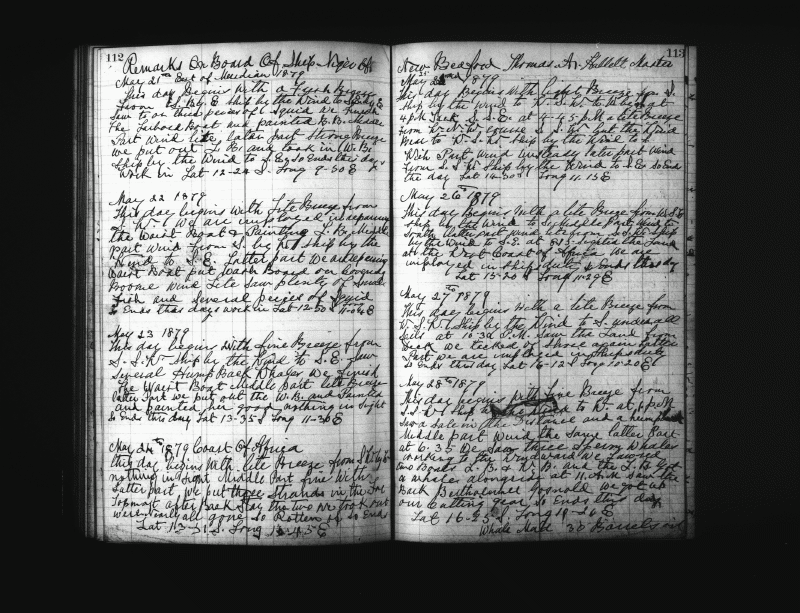 112
Remarks On Board Of Ship Niger Of
May 21st East of Meridian 1879
This day Begins With a Fresh Breeze
from S. By E. Ship by the Wind to
Saw to on three pieces of Squid We Finish
The Larboard Boat and painted B. B. Middle
Part Wind lite latter part Strong Breeze
we put out L. B. and took in W. B.
Ship by the Wind to So Ends the day
Work in Lat 12-24 S. Long 9-50 E
May 22 1879
This day begins With Lite Breeze from
we are imployed in repairing
the Waist Boat & Painting L. B. Middle
part Wind from S. by W. Ship by the
Wind to S. E. Latter part We are repairing
Waist Boat put Wash Board on
Wind Lite Saw plenty of Small
Fish and Several peices of Squid
So Ends this days work in Lat 12-50 S Long 11-04 E
May 23 1879
This day begins With Fine Breeze from
S. S. W. Ship by the Wind to S. E. Saw
Several Hump Back Whales We finish
the Waist Boat Middle part lite Breeze
latter Part We put out the W. B. and Painted
and painted her good nothing in Sight
So Ends this day Lat 13-35 S Long 11-36 E
May 24th 1879 Coast Of Africa
this day begins With lite Breeze from
nothing in Sight Middle Part fine With
Latter part we put three Strands in the Fore
Topmast after Back Stay the two We took out
were nearly all gone So Rotten So Ends
Lat 13-31 S. Long E
113
New Bedford Thomas A. Hallett Master
May 1879
This day Begins With light Breeze from S.
Ship by the Wind to W. S. W. to at
4 P.M. Tack S. S. E. at 4-45 P.M. a lite Breeze
from W. N. W. course S. S. W. but the Wind
Bear to W. S. W. Ship by the Wind to S.
With Part Wind unsteady latter part Wind
from S. S. W. Ship by the Wind to S. E. So End
the day Lat 14-30 S Long 11-13 E
May 26th 1879
This day begins With a lite Breeze from
Ship by the Wind to Middle Part Wind
South latter part Wind Ship
by the Wind to S. E. at Sighted the Land
on the West Coast of Africa We are
imployed in Ships duty So Ends this day
Lat 15-20 S Long 11-29 E
May 27th 1879
This day begins With a lite Breeze from
W. S. W. Ship by the Wind to S. under all
Sails at 10-30 A.M. Saw the Land from
Deck We tacked of Shore again latter
Part we are imployed in Ships duty
So Ends this day Lat 16-12 S Long 10-20 E
May 28th 1879
This day begins With fine Breeze from
S. S. W. Ship by the Wind to W. at P.M
Saw a Sale in the Distance and a humpback
Middle part Wind the Same latter Part
at 6-35 We Saw three Sperm Whales
working to the Windward We lowered
two Boats L. B. & W. B. and the L. B. got
a whale alongside at 11. A.M. Saw the
Bark Bartholomew Gosnold We got up
our Cutting Gear So Ends this day
Lat 16-25 S. Long E
Whale Made 30 Barrels oil